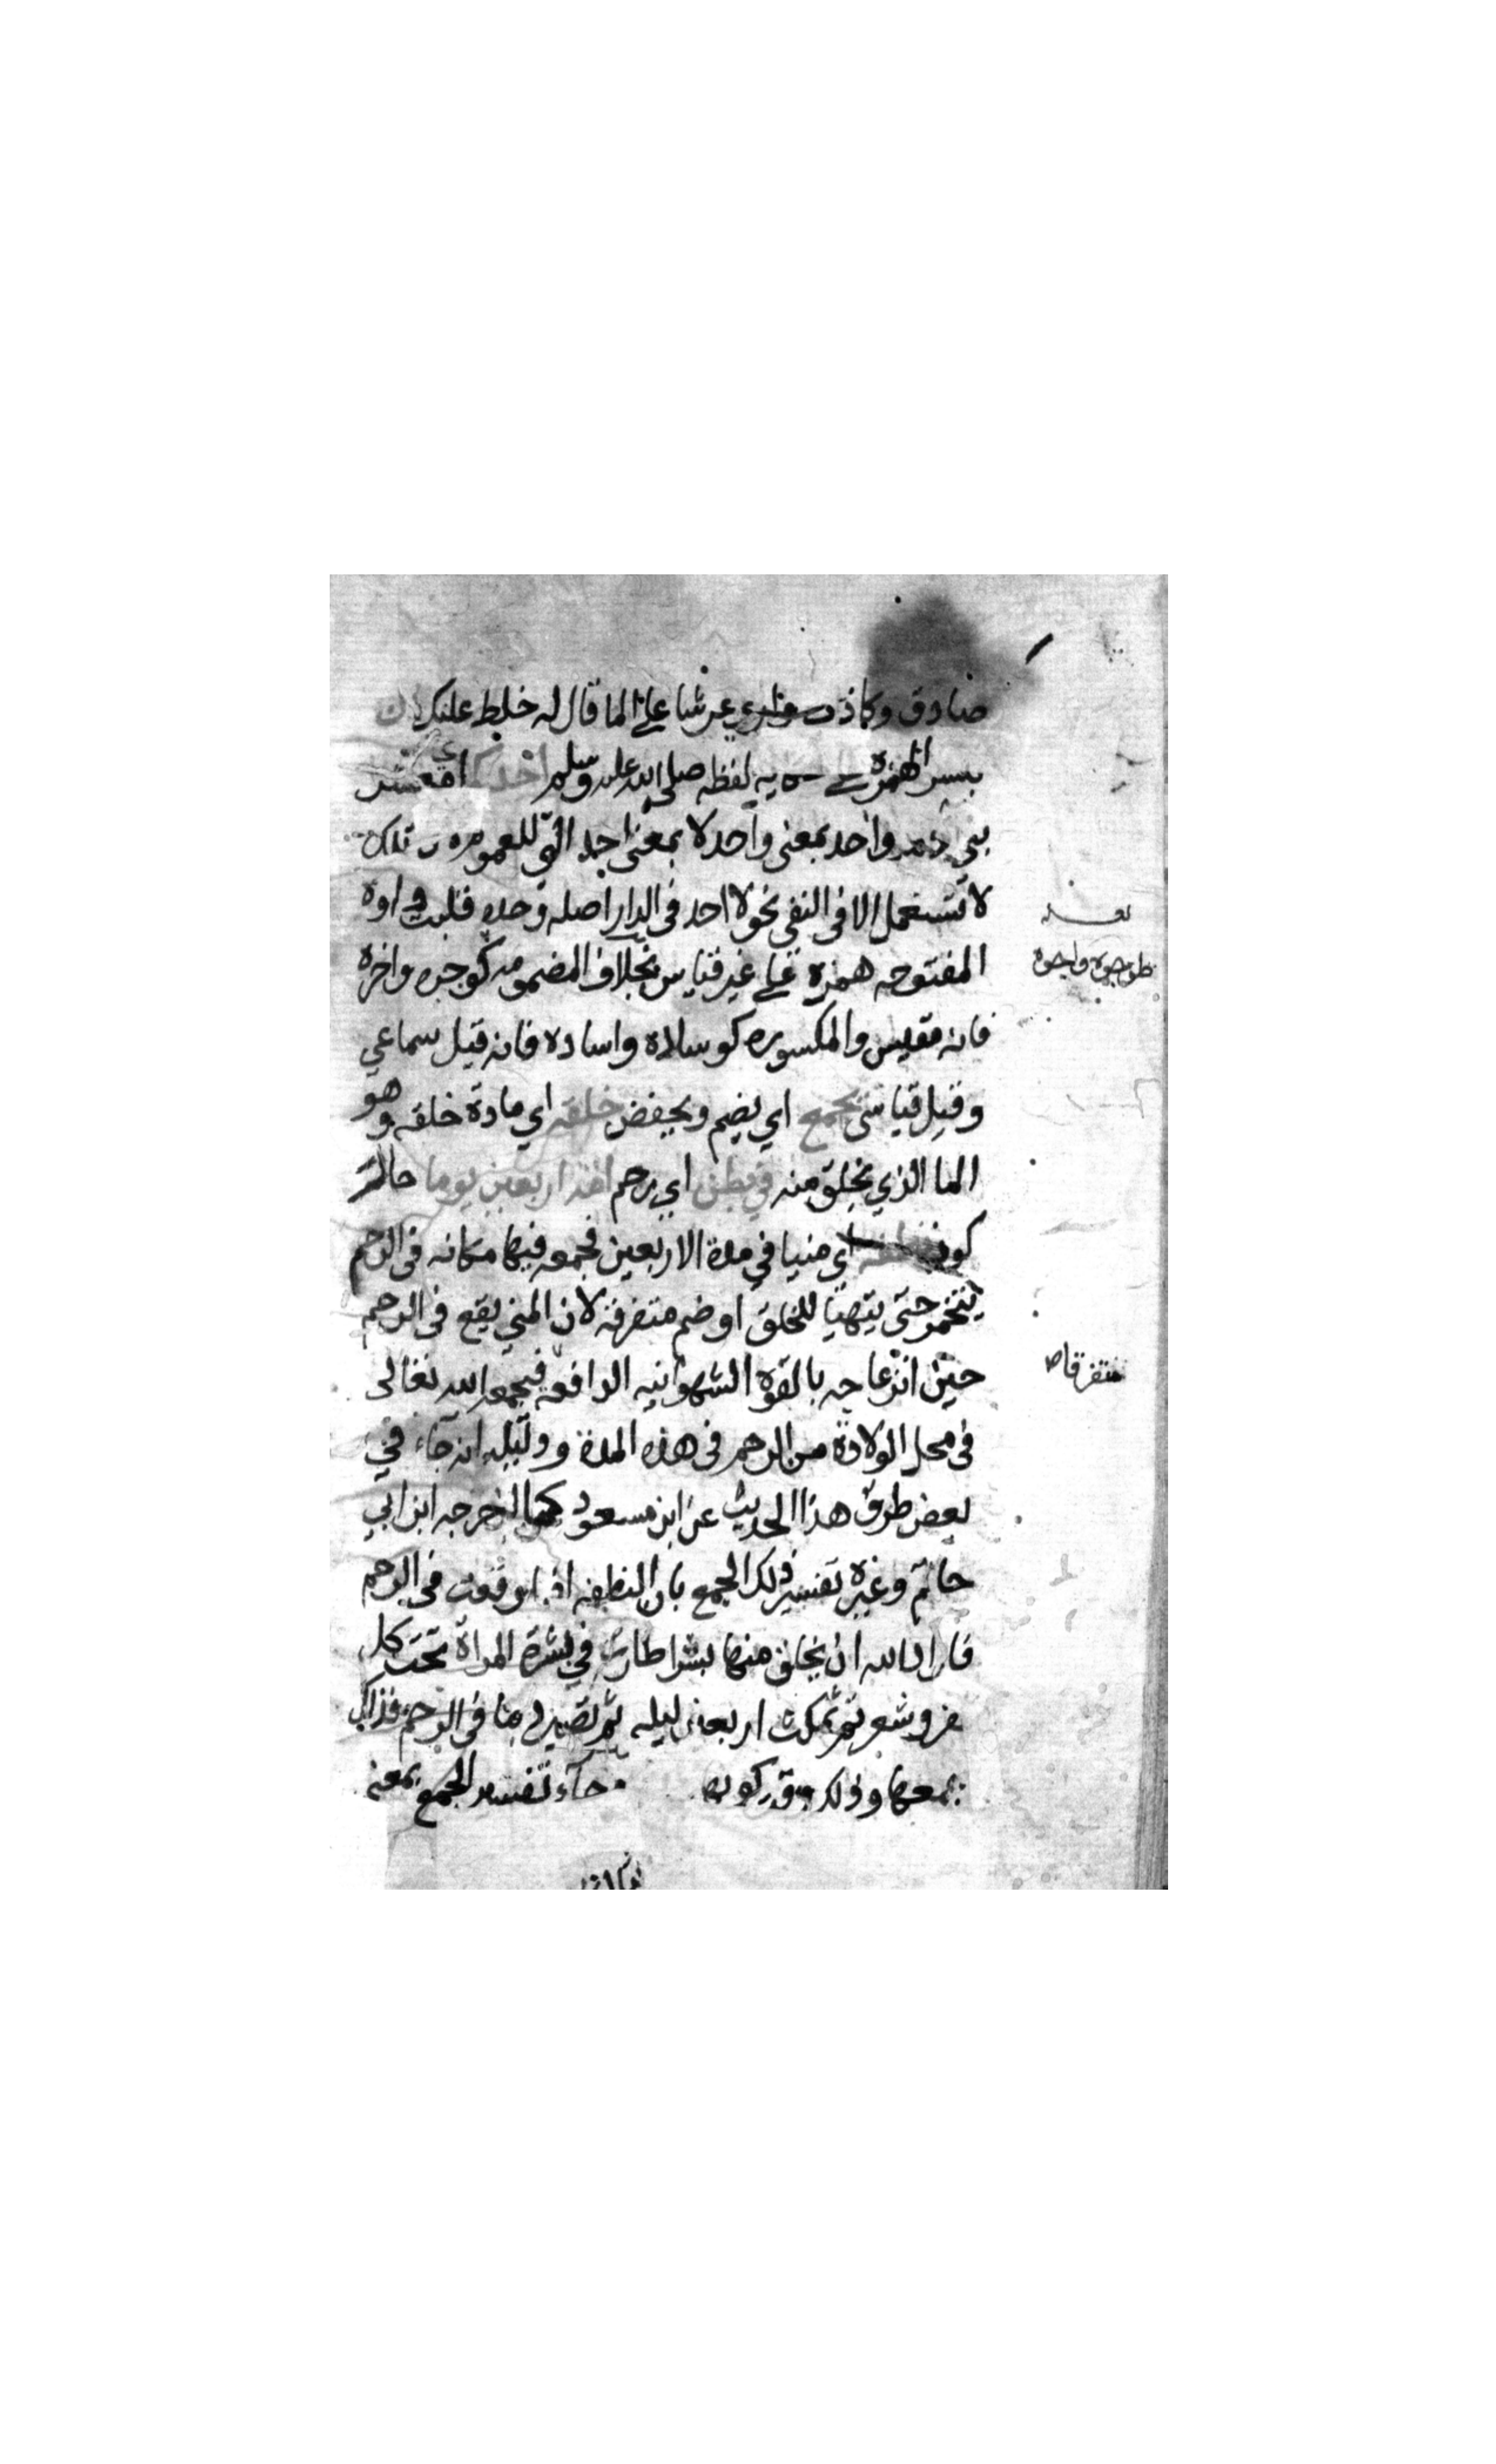 صادق وكاذب واري عرشا على الما قال له خلط عليك ان
بكسر الهمزة لفظه صلى الله عليه وسلم احدكم اي معشر
بني ادم واحد بمعنى واحد لا بمعنى احد التي للعموم لان تلك
لا تستعمل الا في النفي نحو لا احد في الدار اصله وحد قلبت واوه
المفتوحه همزة على غير قياس بخلاف المضمومه كوجوه واجوه
فانه مقيس والمكسوره كوسادة واساده فانه قيل سماعي
وقيل قياسي يجمع اي يضم ويحفض خلقه اي مادة خلقه وهو
الما الذي يخلق منه في بطن اي رحم امه اربعين يوما حالة
كونه نطفه اي منيا في مدة الاربعين فجمعه فيها مكانه في الرحم
يتخمر حتى يتهيا للخلق او ضم متفرقه لان المني يقع في الرحم
حين انزعاجه بالقوه الشهوانيه الدافعه فيجمعه الله تعالى
في محل الولادة من الرحم في هذه المدة ودليله انه جاء في
بعض طرق هذا الحديث عن ابن مسعود كما اخرجه ابن ابي
حاتم وغيره تفسير ذلك الجمع بان النطفه اذا وقعت في الرحم
فاراد الله ان يخلق منها بشرا طارت في بشرة المراة تحت كل
ظفر وشعر ثم تمكث اربعين ليله ثم تصير دما في الرحم فذلك
جمعها وذلك وقت كونها جاء تفسير الجمع بمعنى
متفرقا